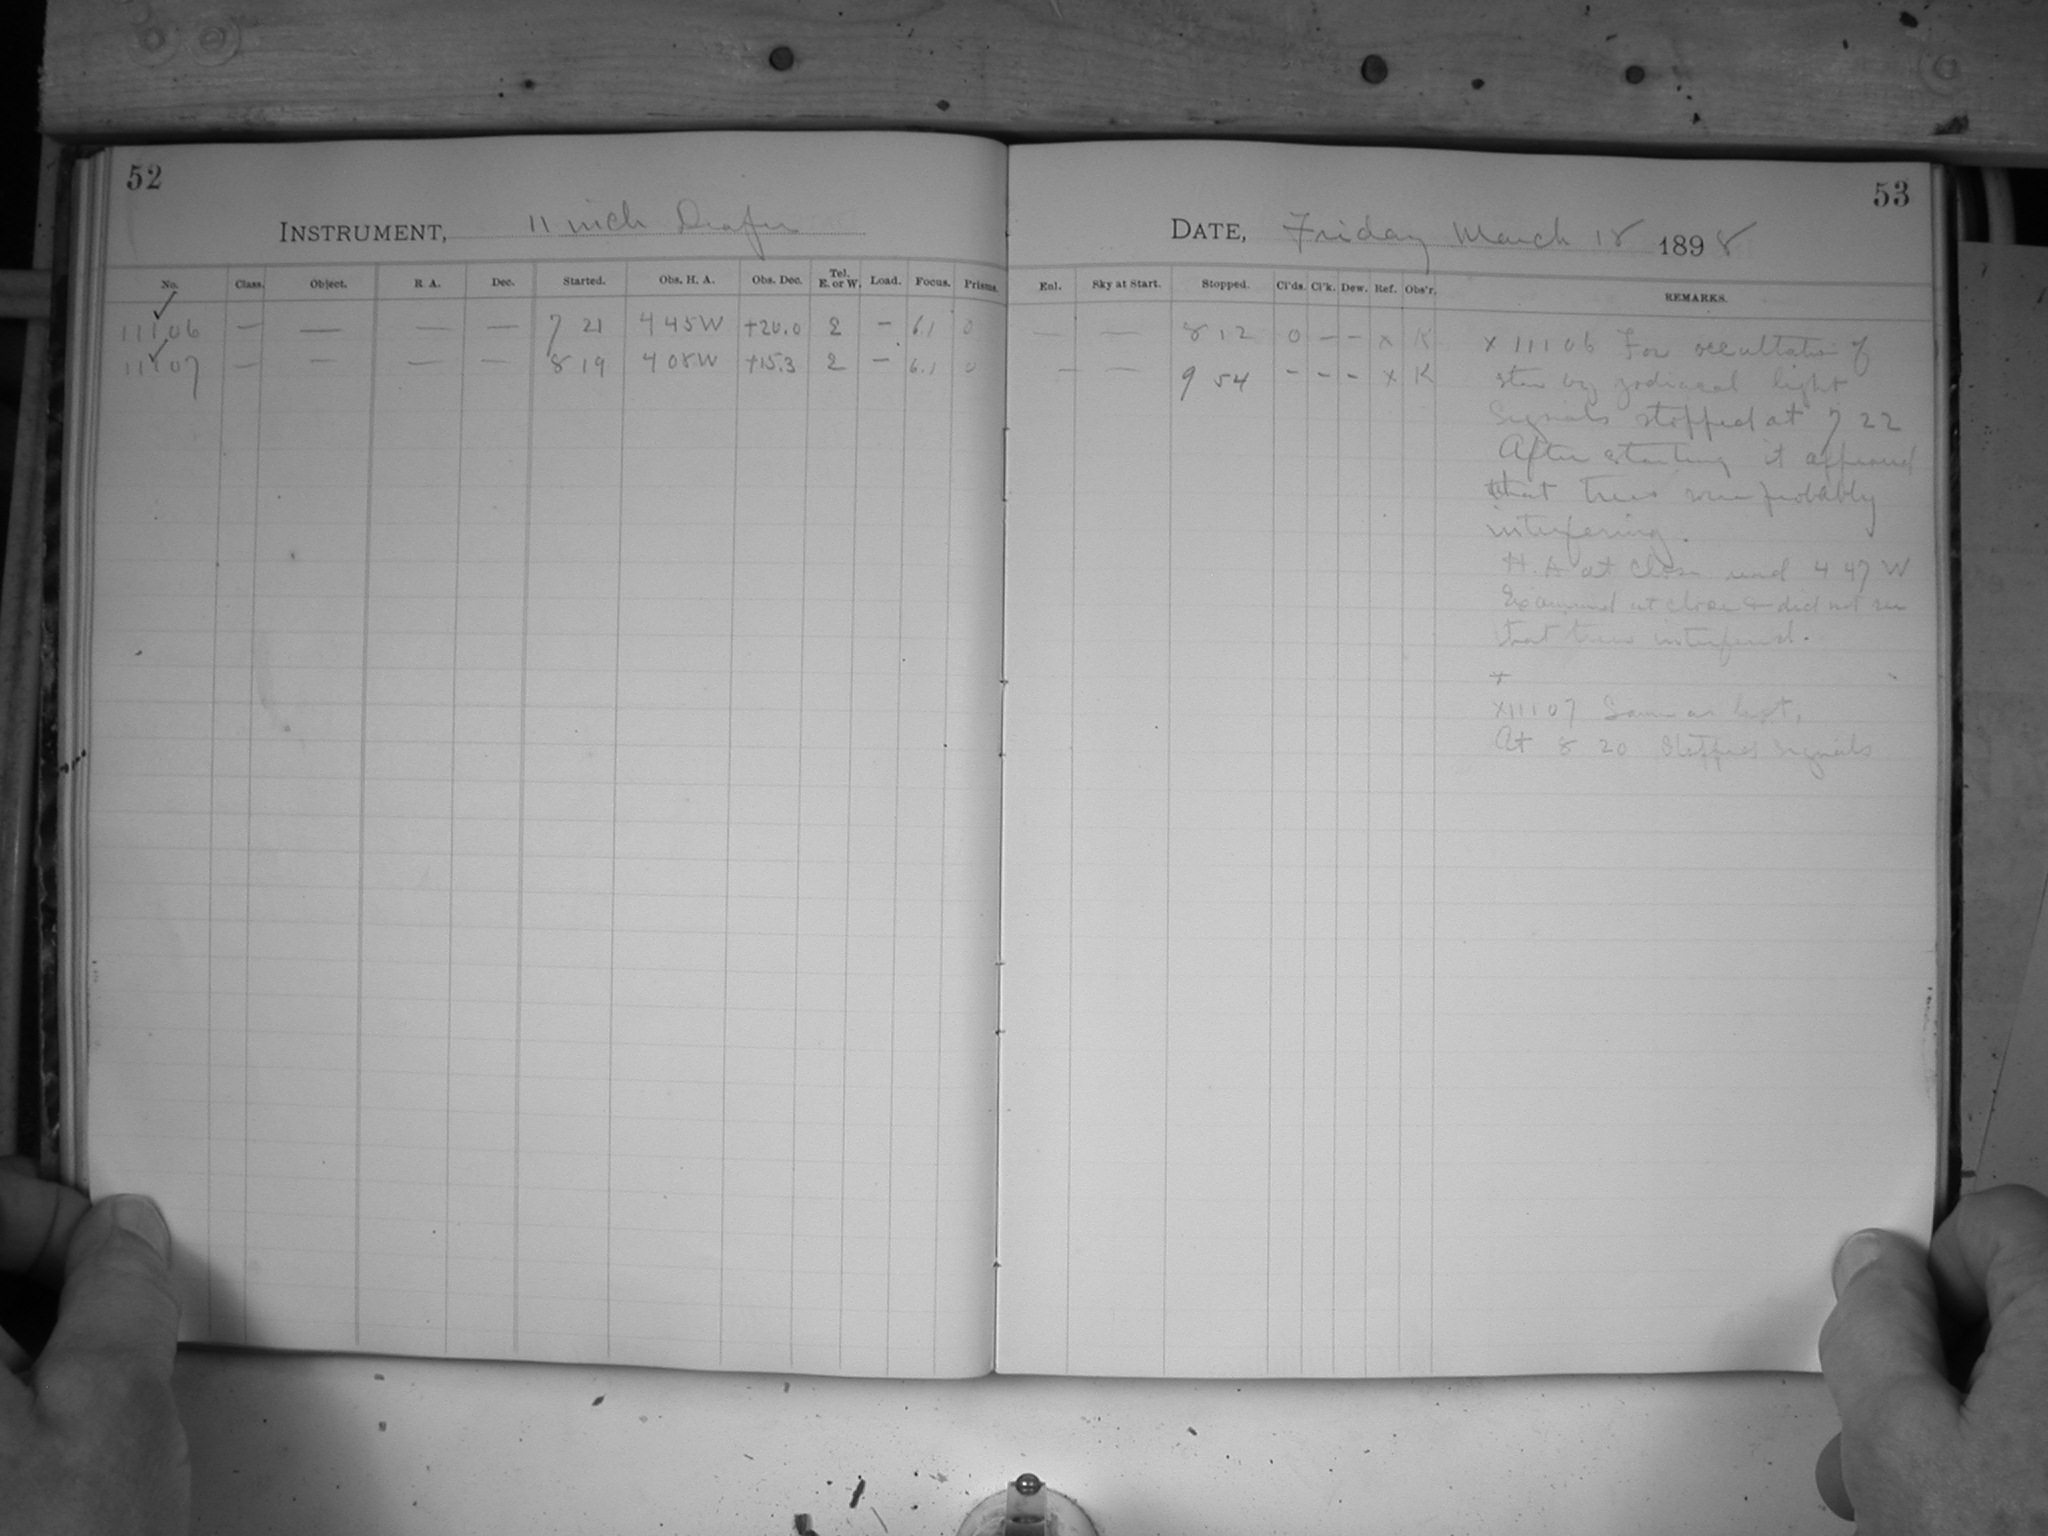 52
INSTRUMENT, 11 inch Draper
No. Class. Object. R A. Dec. Started. Obs. H. A. Obs. Dec. Tel. E. or W. Load. Focus. Prisms.
11106 — — — — 7 21 4 45 W +20.0 2 — 6.1 0
11107 — — — — 8 19 4 08 W +15.3 2 — 6.1 0
53
DATE, Friday March 18 1898
Enl. Sky at Start. Stopped. Cl'ds. Cl'k. Dew. Ref. Obs'r. REMARKS.
— — 8 12 0 - - x K
— — 9 54 - - - x K
x 11106 For occultation of
star by zodiacal light
Signals stopped at 7 22
After starting it appeared
that trees were probably
interfering.
H. A at close read 4 47 W
Examined at close & did not see
that trees interfered.
x
x11107 Same as last,
At 8 20 Stopped signals